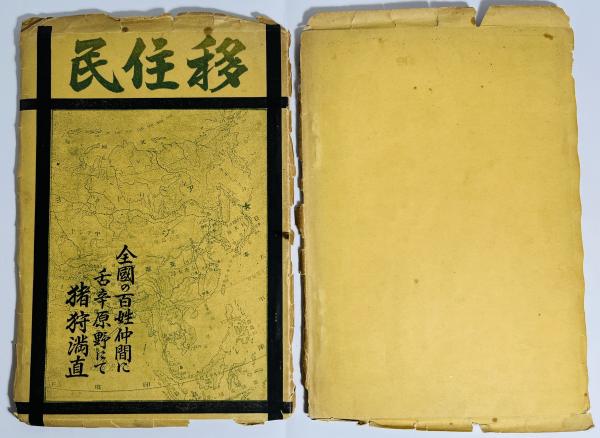 移住民
全國の百姓仲間に
舌辛原野にて
猪狩満直